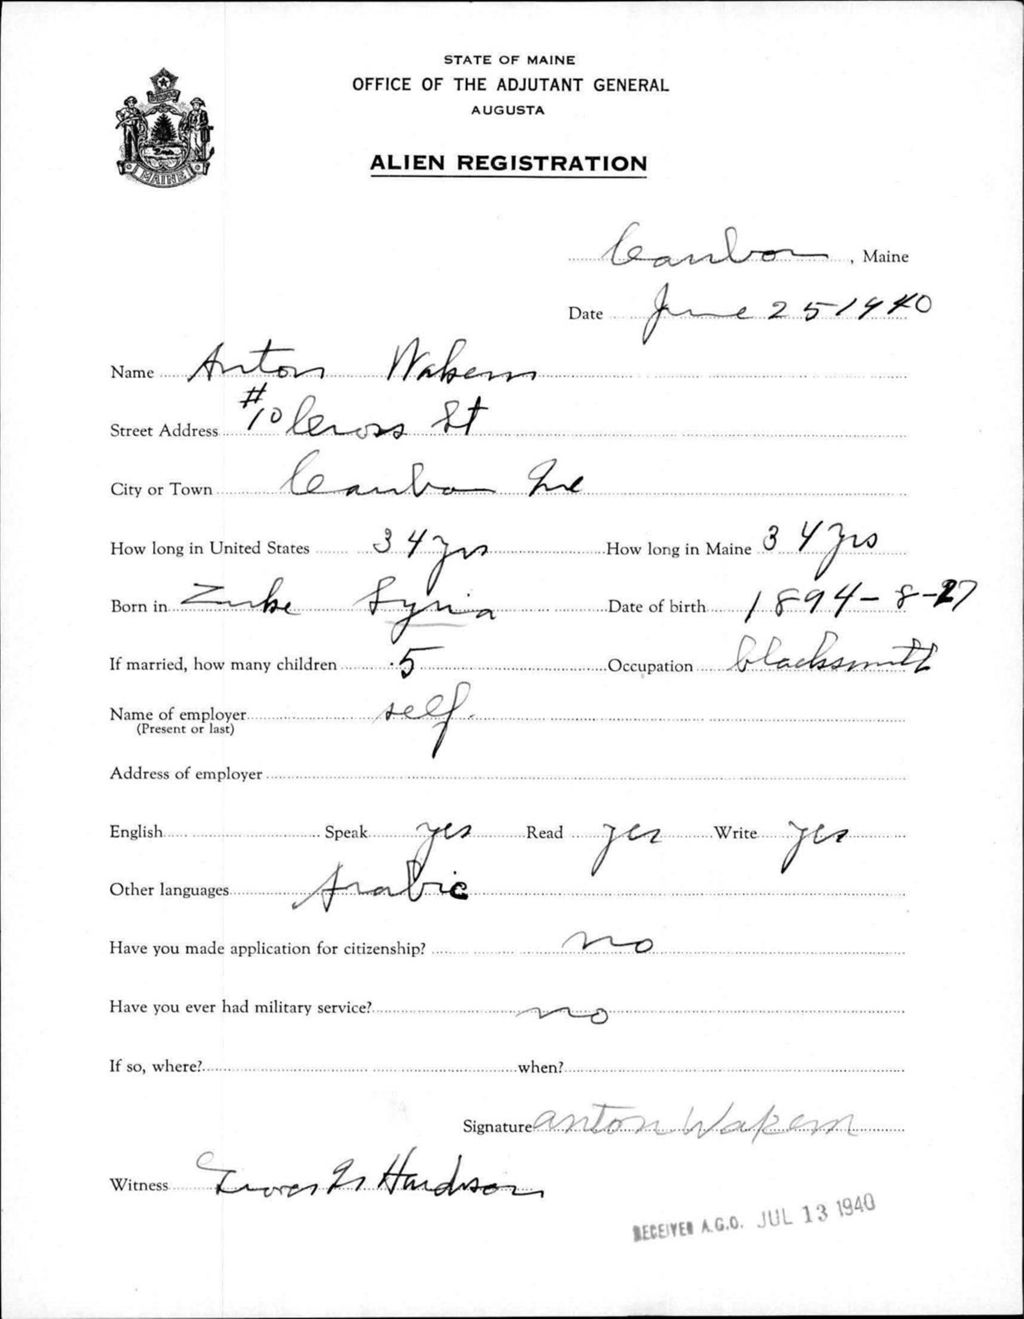 STATE OF MAINE
OFFICE OF THE ADJUTANT GENERAL
AUGUSTA
ALIEN REGISTRATION
MAINE
Caribou, Maine
Date June 25 1940
Name Anton Wakem
Street Address #10 Cross St
City or Town Caribou Me
How long in United States 34 yrs How long in Maine 34 yrs
Born in Syria Date of birth 1894-8-27
If married, how many children 5 Occupation blacksmith
Name of employer self.
(Present or last)
Address of employer
English Speak yes Read yes Write yes
Other languages Arabic
Have you made application for citizenship? no
Have you ever had military service? no
If so, where? when?
Signature anton Wakem
Witness Hardison
RECEIVED A.G.O. JUL 13 1940